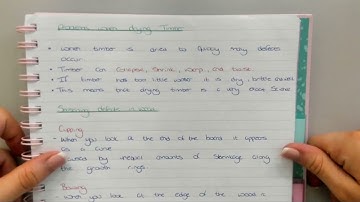 Problems when drying Timber
• When timber is dried to quickly many defects
occur
• Timber can collapse, Shrink, warp, and twist
• If timber has too little water it is dry, brittle
• This means that drying timber is a very exact
Seasoning defects in wood
Cupping
- When you look at the end of the board it appears
as a curve
- Caused by unequal amounts of Shrinkage along
the growth rings
Bowing
- When you look at the edge of the wood it